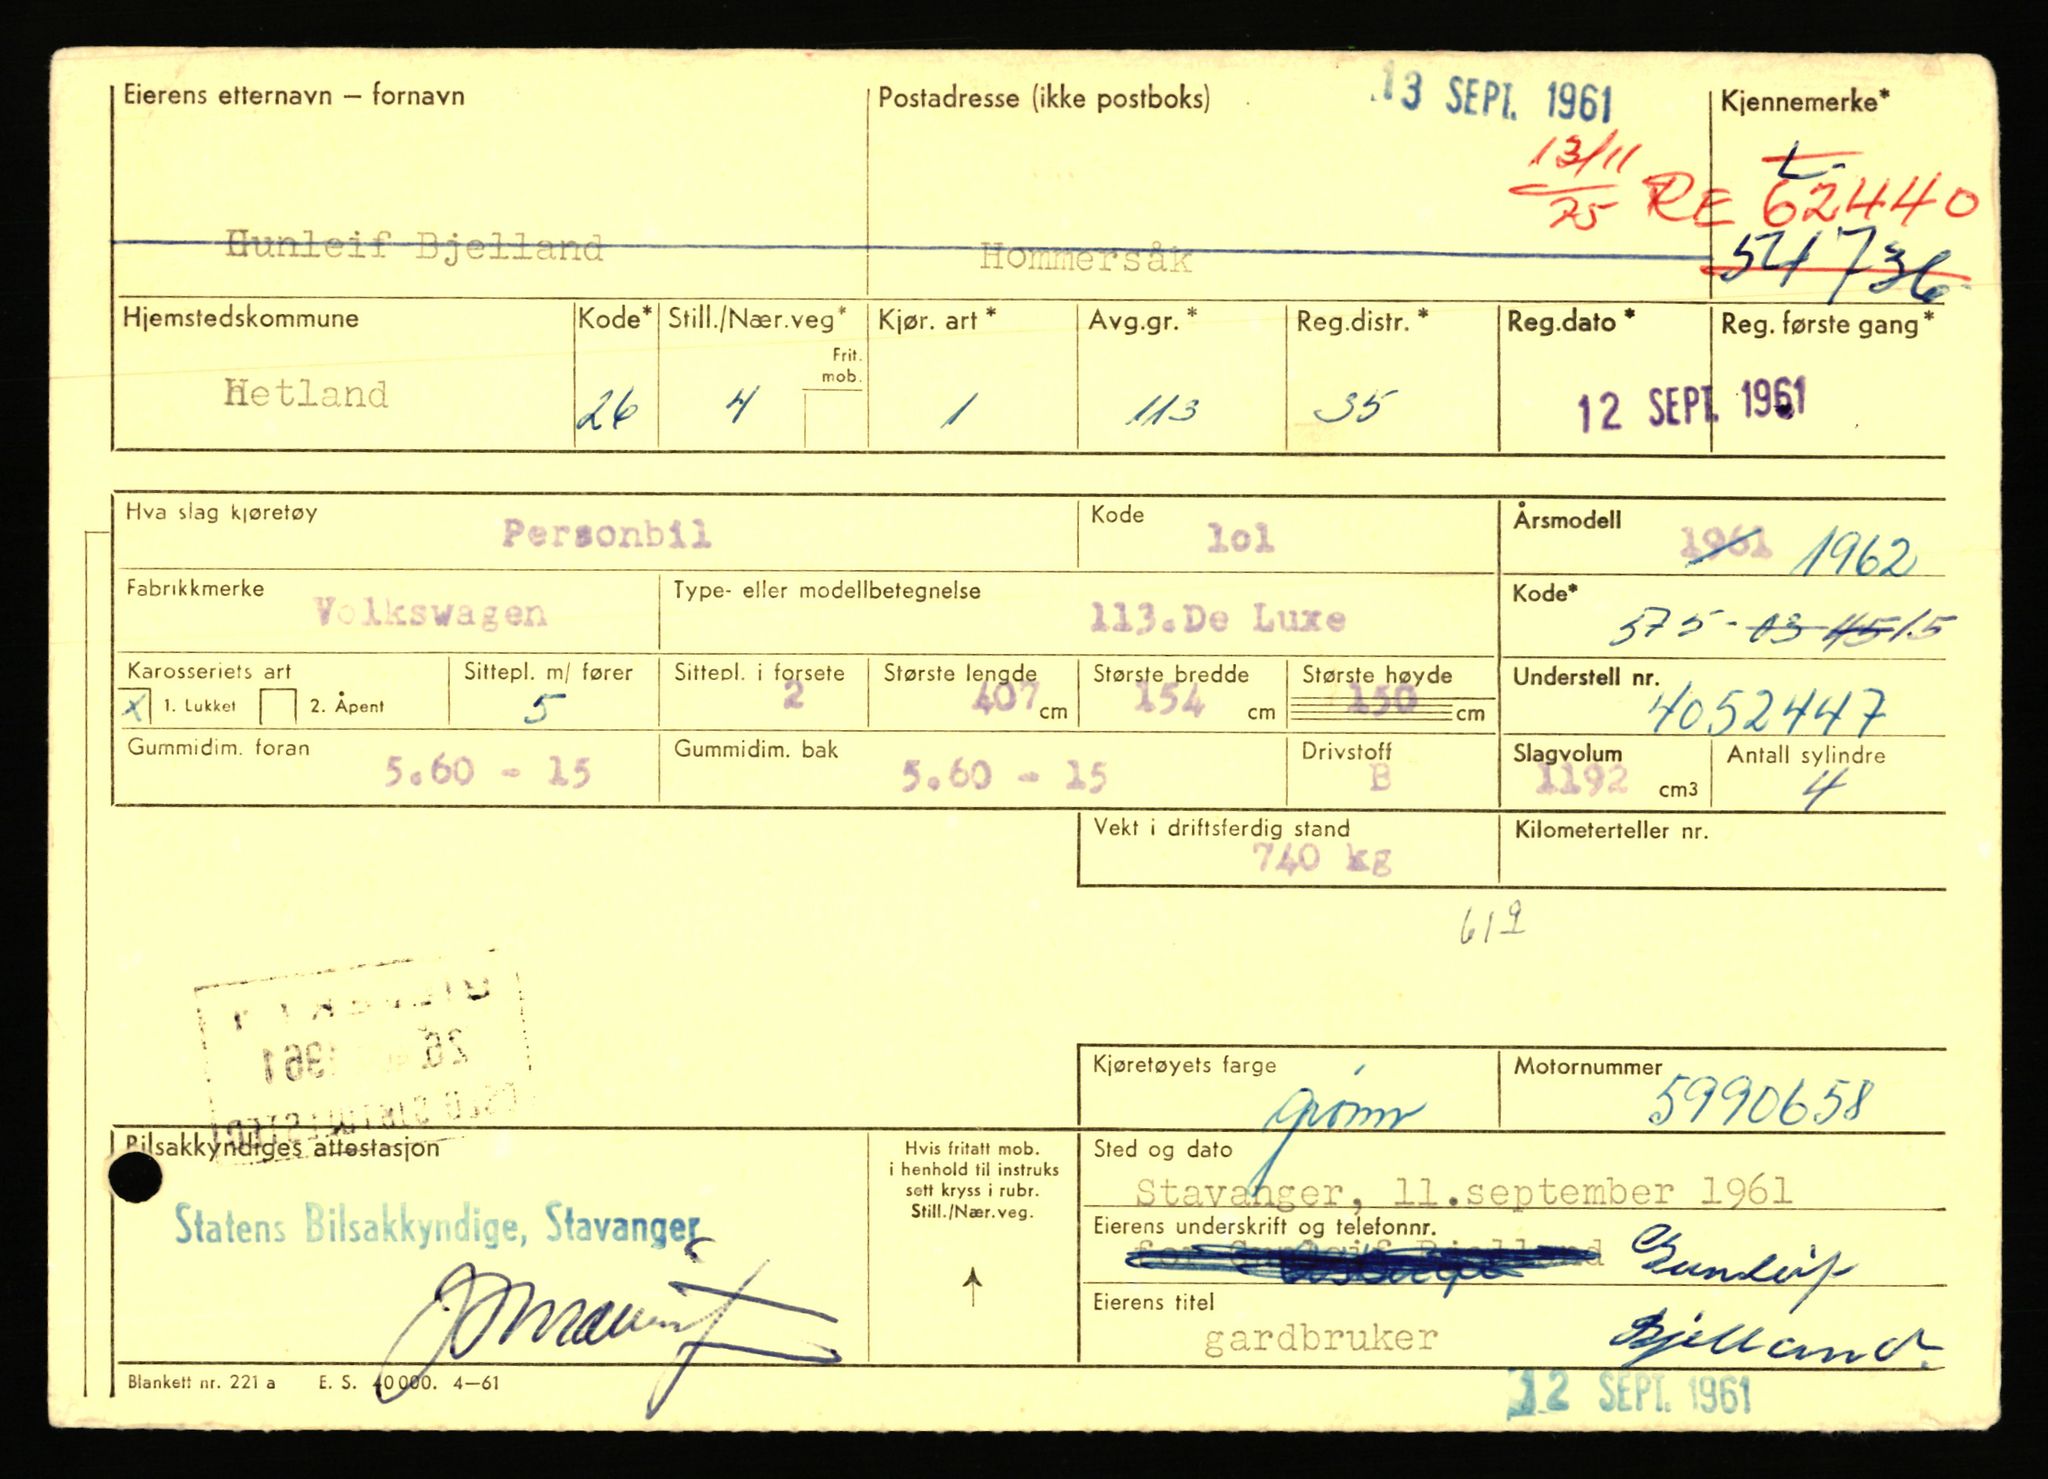 13 SEPT. 1961
Eierens etternavn – fornavn Postadresse (ikke postboks) Kjennemerke*
13/11 75 RE 62440
L-
Gunleif Bjelland Hommersåk 54736
Hjemstedskommune Kode* Still./Nær.veg* Kjør. art* Avg.gr.* Reg.distr.* Reg.dato* Reg. første gang*
Frit. mob.
Hetland 26 4 1 113 35 12 SEPT. 1961
Hva slag kjøretøy Personbil Kode 101 Årsmodell 1961 1962
Fabrikkmerke Volkswagen Type- eller modellbetegnelse 113.De Luxe Kode* 575-03 45 15
Karosseriets art Sittepl. m/ fører Sittepl. i forsete Største lengde Største bredde Største høyde Understell nr.
x 1. Lukket 2. Åpent 5 2 407 cm 154 cm 150 cm 4052447
Gummidim. foran Gummidim. bak Drivstoff Slagvolum Antall sylindre
5.60 - 15 5.60 - 15 B 1192 cm3 4
Vekt i driftsferdig stand Kilometerteller nr.
740 kg
619
26 1961
Kjøretøyets farge Motornummer
grønn 5990658
Bilsakkyndiges attestasjon Hvis fritatt mob. Sted og dato
i henhold til instruks
sett kryss i rubr.
Still./Nær.veg.
Stavanger, 11.september 1961
Statens Bilsakkyndige, Stavanger
Eierens underskrift og telefonnr.
for Gunleif Bjelland Gunleif
Eierens titel
gardbruker Bjelland.
Blankett nr. 221 a E. S. 40 000. 4–61
12 SEPT. 1961